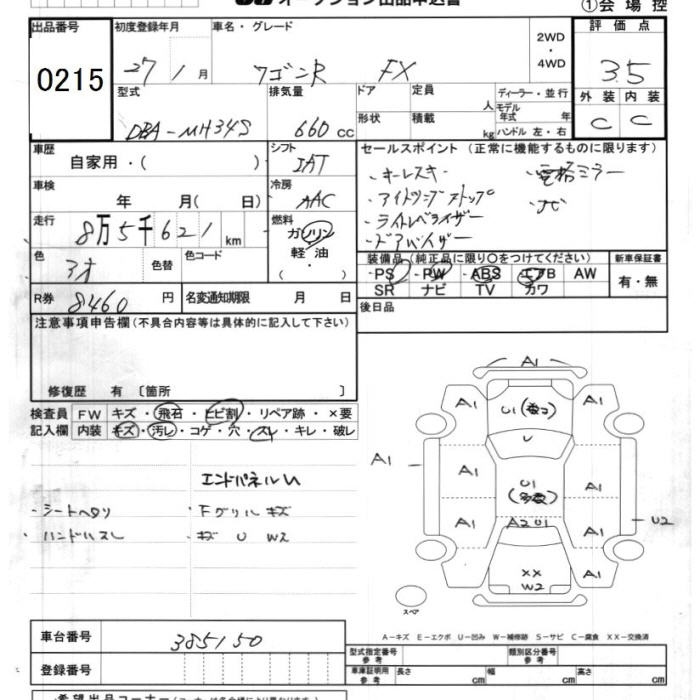 オークション出品申込書
①会場控
出品番号 初度登録年月 車名・グレード 2WD・4WD 評価点
0215 27年1月 ワゴンR FX 3.5
型式 排気量 ドア 定員 人 ディーラー・並行 外装 内装
DBA-MH34S 660cc 形状 積載 kg モデル年式 年 ハンドル 左・右 C C
車歴 シフト セールスポイント (正常に機能するものに限ります)
自家用・( ) IAT ・キーレスキー ・電格ミラー
車検 冷房 ・アイドリングストップ ・ナビ
年 月( 日) AAC ・ライトレベライザー
走行 燃料 ・ドアバイザー
8万5千621km ガソリン
軽油
( ・ )
装備品(純正品に限り○をつけてください) 新車保証書
・PS ・PW ・ABS エアB AW 有・無
SR ナビ TV カワ
色 アオ 色替 色コード
R券 8460円 名変通知期限 月 日 後日品
注意事項申告欄(不具合内容等は具体的に記入して下さい)
修復歴 有 〔箇所 〕
検査員 FW キズ・飛石・ヒビ割・リペア跡・×要
記入欄 内装 キズ・汚レ・コゲ・穴・スレ・キレ・破レ
エンドパネルU
・シートヘタリ ・Fグリルキズ
・ハンドルスレ ・キズ U W2
A1
A1 U1 A1
U
A1 A1 U1 A1
(多数)
A1 A2 U1 A1 U2
XX
A1 W2 A1
スペア
A-キズ E-エクボ U-凹み W-補修跡 S-サビ C-腐食 XX-交換済
車台番号 385150
登録番号
型式指定番号 参考 類別区分番号 参考
車庫証明用 参考 長さ cm 幅 cm 高さ cm
希望出品コーナー